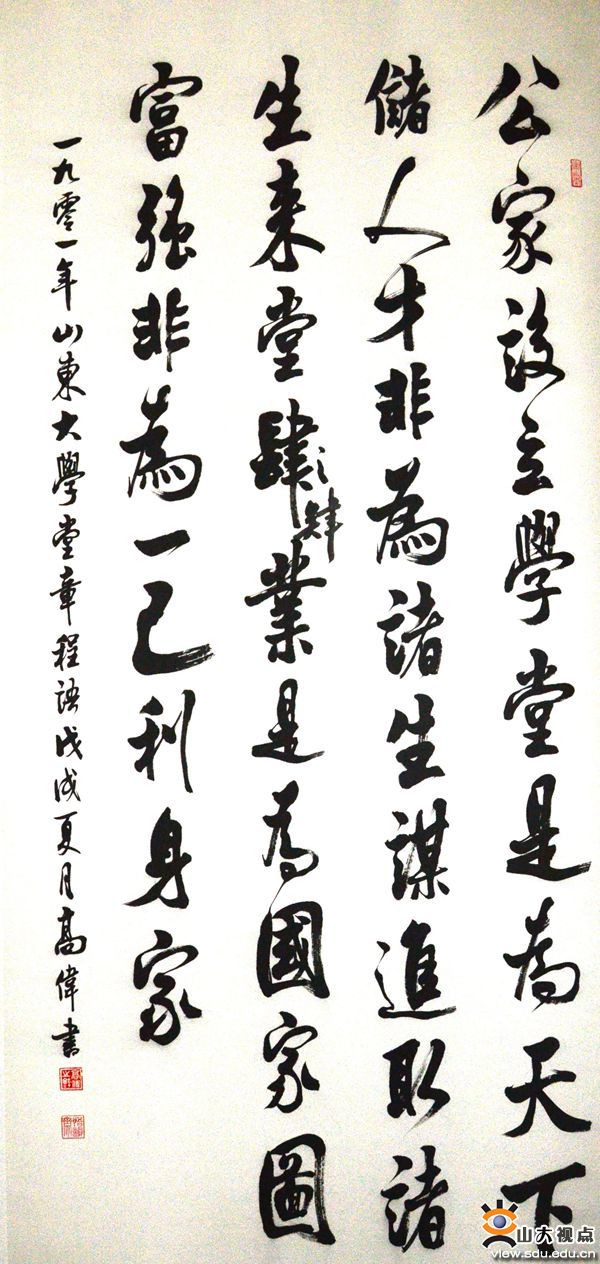 公家設立學堂是為天下
儲人才非為諸生謀進取諸
生來堂肆肄業是為國家圖
富強非為一己利身家
一九零一年山東大學堂章程語戊戌夏月高偉書
山大视点
view.sdu.edu.cn